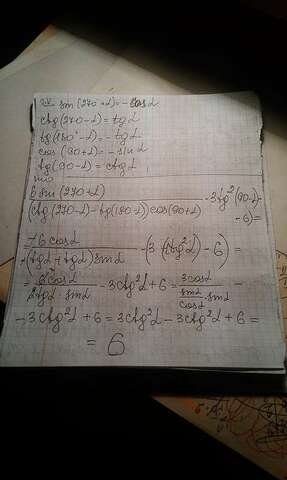 Т.к. sin(270+α) = -cosα
ctg(270-α) = tgα
tg(180°-α) = -tgα
cos(90+α) = -sinα
tg(90-α) = ctgα
то
6 sin(270+α) / (ctg(270-α) - tg(180-α))cos(90+α) - 3tg²(90-α)
- 6) =
-6cosα / -(tgα+tgα)sinα - (3(ctg²α) - 6) =
= 6cosα / 2tgα·sinα - 3ctg²α + 6 = 3cosα / (sinα/cosα · sinα) -
- 3ctg²α + 6 = 3ctg²α - 3ctg²α + 6 =
= 6